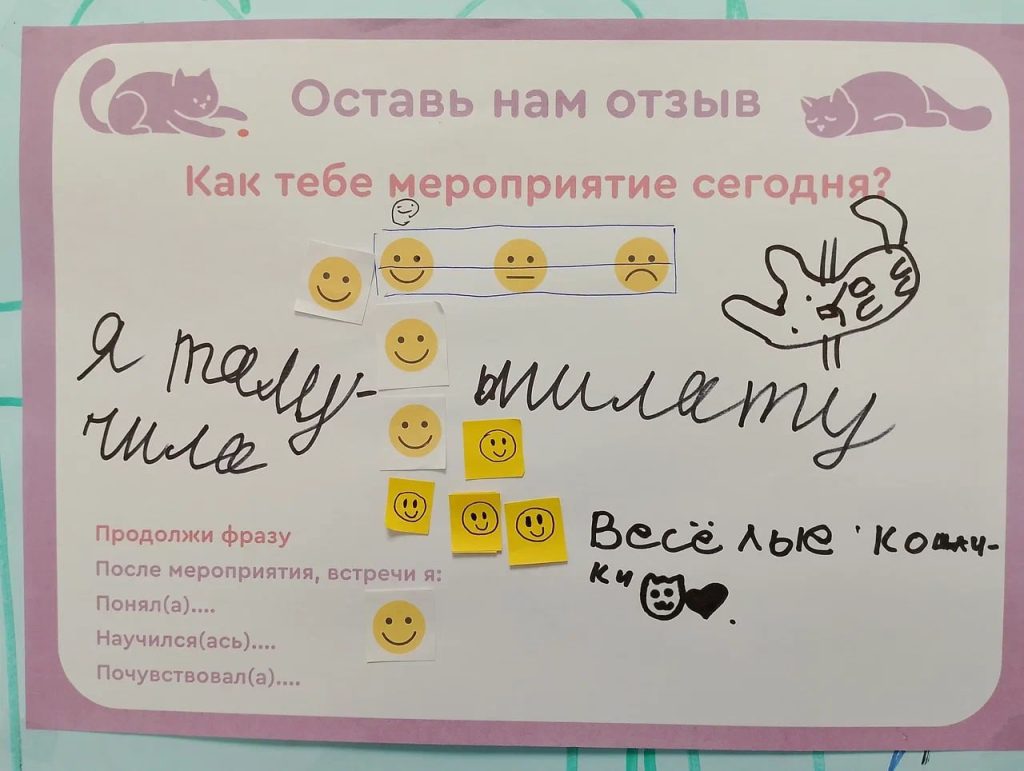 Оставь нам отзыв
Как тебе мероприятие сегодня?
я талу-
чила
шилату
Весё лые кошач-
ки
Продолжи фразу
После мероприятия, встречи я:
Понял(а)....
Научился(ась)....
Почувствовал(а)....